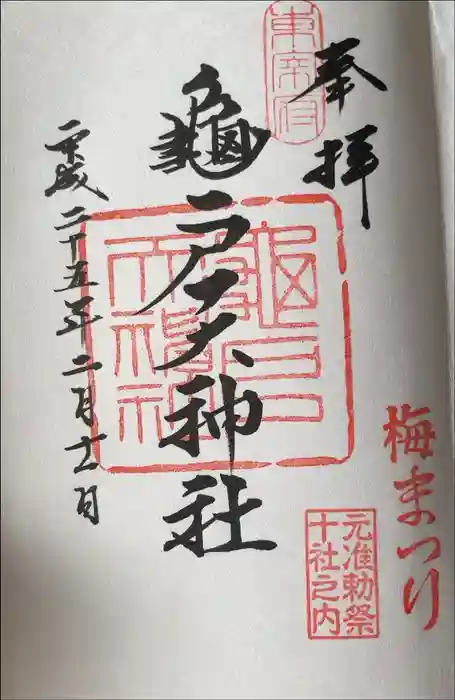 奉拝
東京府
龜戸天神社
龜戸
天神社
平成二十五年二月十一日
梅まつり
元准勅祭
十社之内